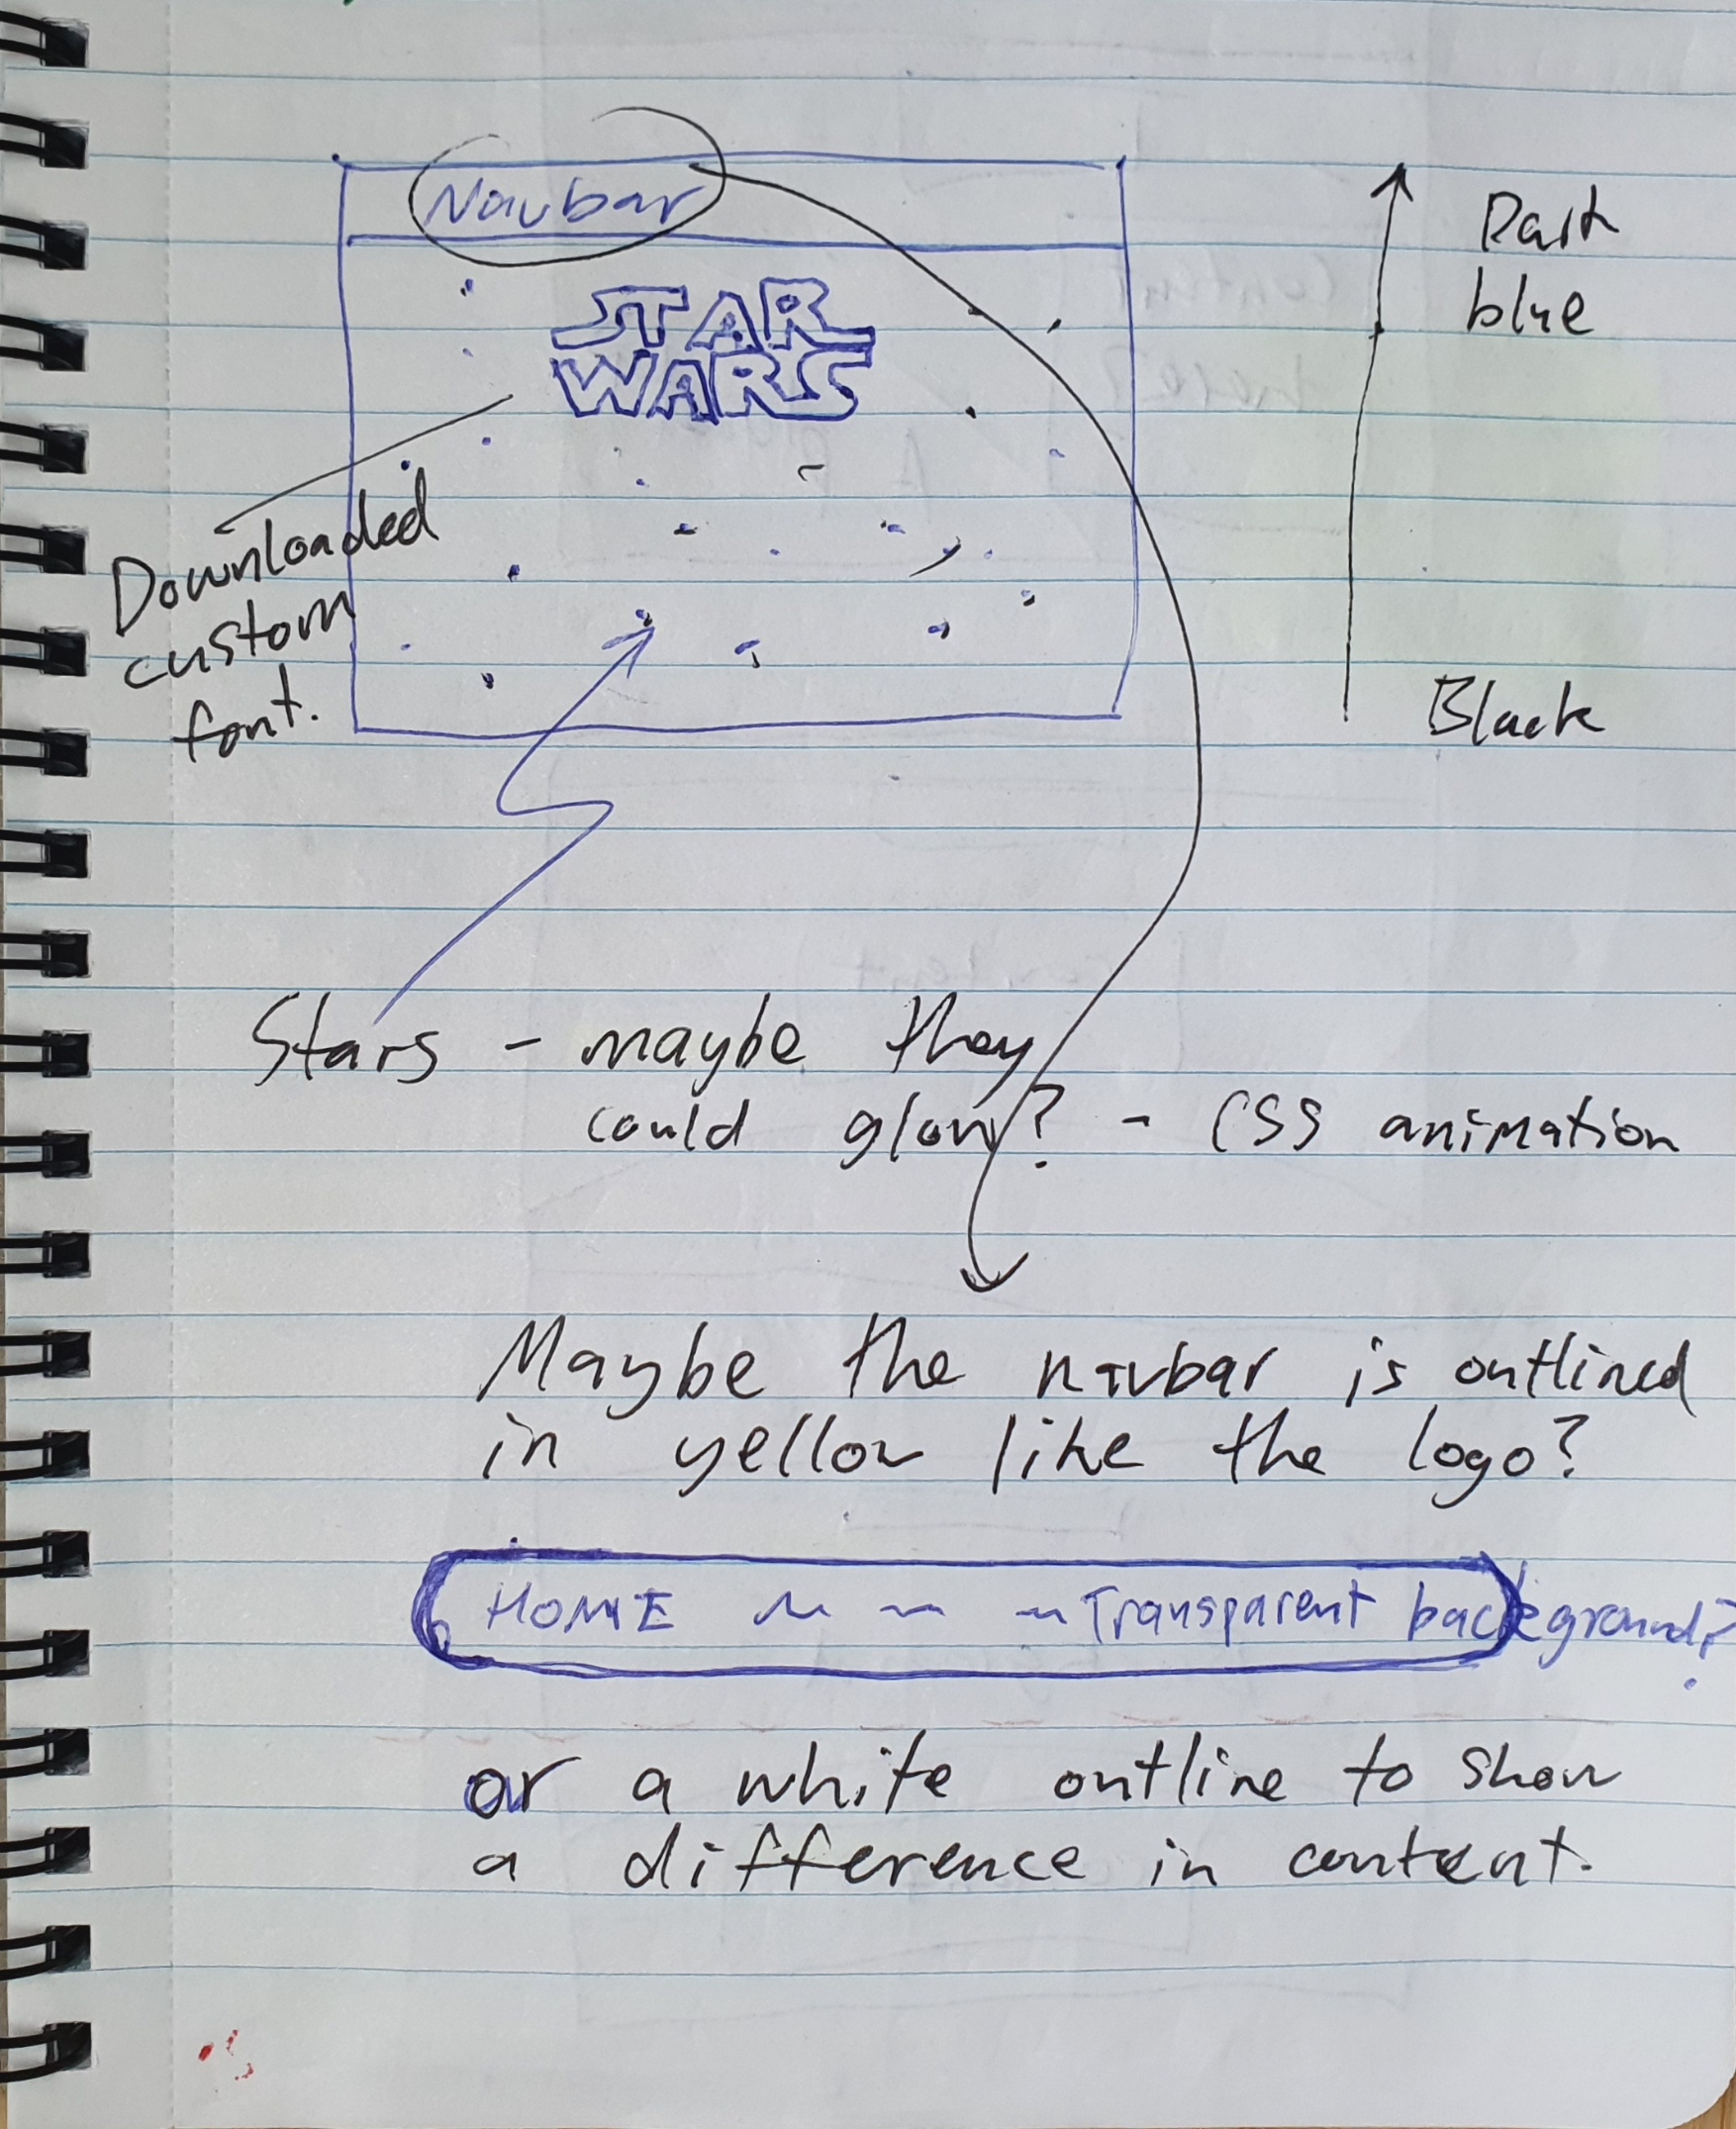 Navbar
STAR
WARS
Downloaded
custom
font.
Dark
blue
Black
Stars - maybe they
could glow? - CSS animation
Maybe the navbar is outlined
in yellow like the logo?
HOME
Transparent background?
or a white outline to show
a difference in content.